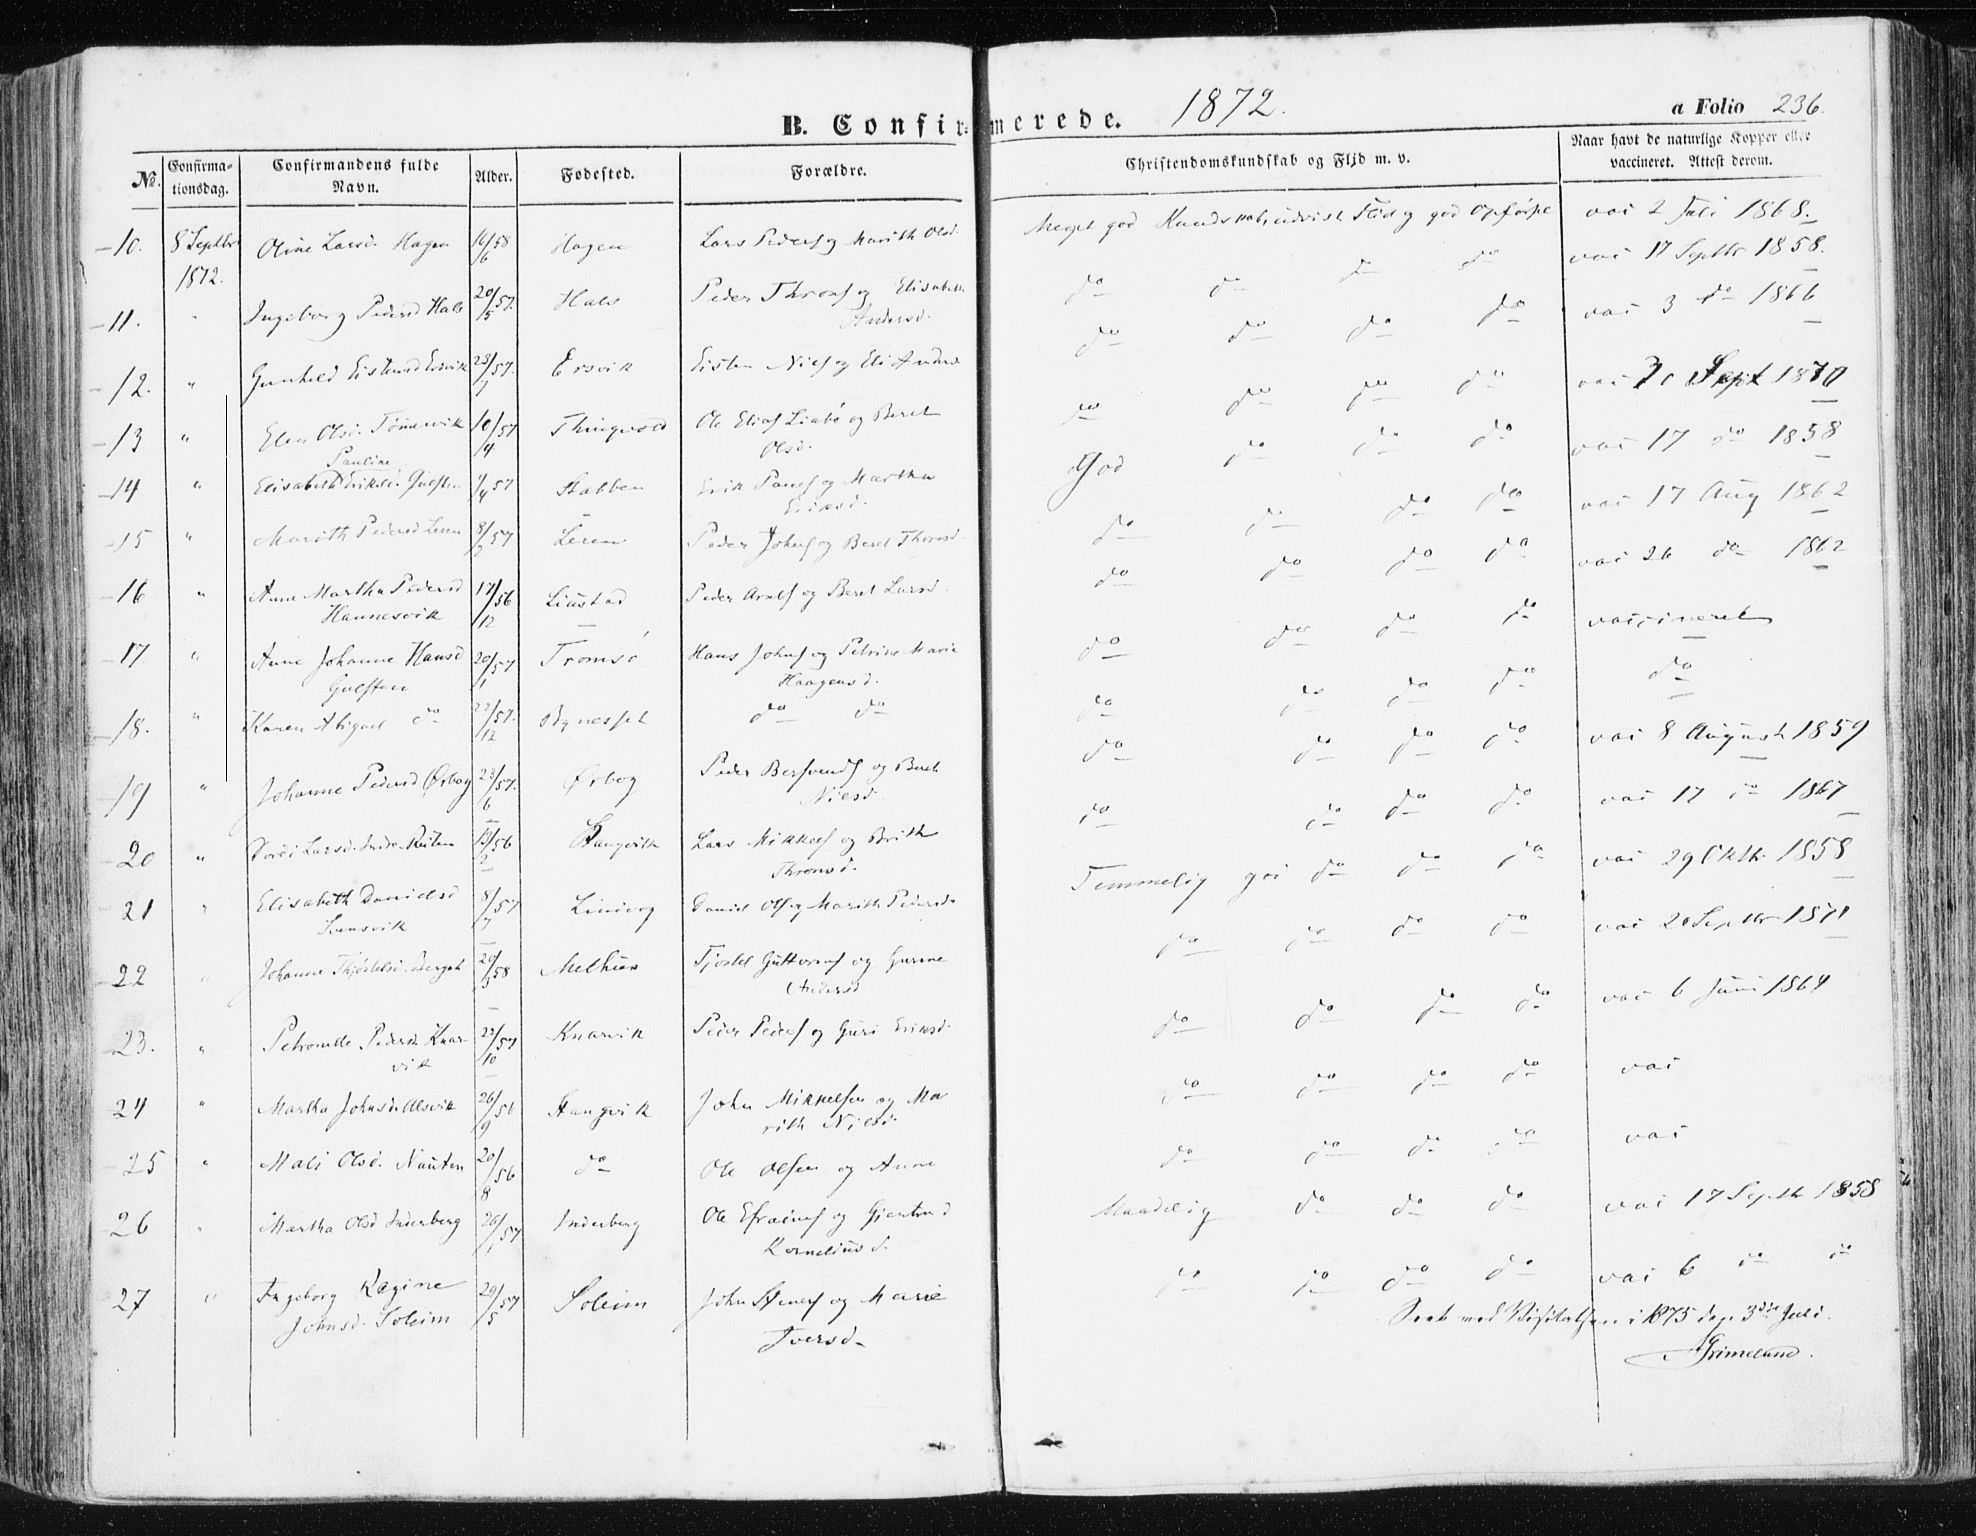 B. Confirmerede. 1872. a Folio 236.
No. Confirmationsdag. Confirmandens fulde Navn. Alder. Fødested. Forældre. Christendomskundskab og Flid m. v. Naar havt de naturlige Kopper eller vaccineret. Attest derom.
10. 8 Septbr 1872. Oline Larsd. Hagen 16/6 58 Hagen Lars Peders og Marith Olsd. Meget god Kundskab udvist Flid og god Opførsel vac 2 Juli 1868.
11. " Ingeborg Pedersd Hals 20/5 57. Hals Peder Throns og Elisabeth Andersd. do do do do vac 17 Septbr 1858.
12. " Gunhild Eistensd Ersvik 23/7 57. Ersvik Eisten Niels og Eli Anders do do do do vac 3 do 1866
13 " Elen Olsd. Tømmervik 10/4 57 Thingvold Ole Elias Liabø og Beret Olsd. do do do do vac Sept 1870
14 " Elisabeth Pauline Eriksd. Gulsten 1/4 57 Stabben Erik Pauls og Martha Eriksd. God do do do vac 17 do 1858
15 " Marith Pedersd Leren 8/2 57 Leren Peder Johns og Beret Thoresd. do do do do vac 17 Aug 1862
16 " Anne Martha Pedersd Hannesvik 17/12 56 Liustad Peder Arnts og Beret Larsd. do do do do vac 26 do 1862
17 " Anne Johanne Hansd Gulsten 20/1 57 Tromsø Hans Johns og Petrine Marie Haagensd. do do do do vaccineret
18. " Karen Abigael do 22/12 57. Bynesset do do do do do do do
19 " Johanne Pedersd Ørbog 23/6 57. Ørbog Peder Bersvends og Beret Nielsd. do do do do vac 8 August 1859
20 " Larsd. Indr. 13/2 56 Stangvik Lars Mikkels og Brith Thronsd. do do do do vac 17 do 1867
21 " Elisabeth Danielsd Svensvik 8/7 57 Daniel Ols og Marith Pedersd. Temmelig god do do do vac 29 Oktbr. 1858
22 " Johanne Berget 20/3 58 Melhus Tjostel Guttorms og Gurine Andersd do do do do vac 20 Septbr 1871
23. " Petronelle Pedersd. Knarvik 22/10 57 Knarvik Peder Peders og Guri Eriksd. do do do do vac 6 Juni 1864
24 " Martha Johnsd. Alsvik 26/9 56 Stangvik John Mikkelsen og Marith Nilsd. do do do do vac
25 " Mali Olsd. Nauten 20/8 56 do Ole Olsen og Anne do do do do vac
26 " Martha Olsd Inderberg 26/1 57 Inderberg Ole Efraims og Gjertrud Korneliusd. Maadelig do do do vac 17 Septbr 1858
27 " Ingeborg Regine Johnsd. Soleim 29/5 57 Soleim John Steners og Marie Iversd. do do do do vac 6 do do
Seet ved Visitatsen i 1875 den 3die Juli.
Grimelund.